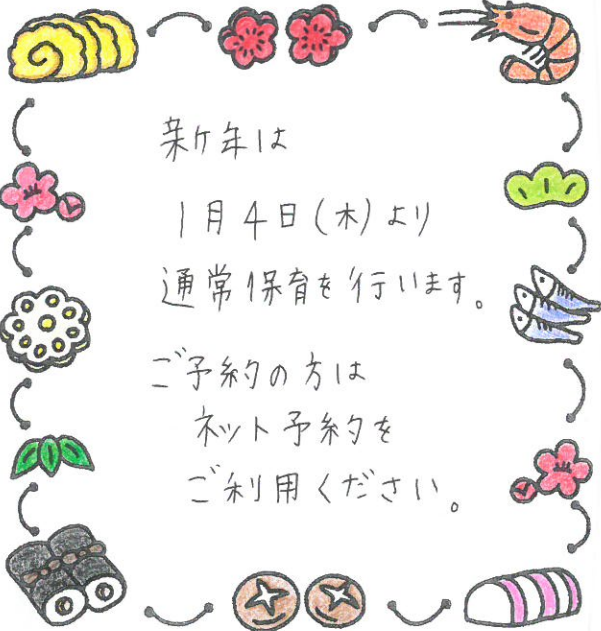 新年は
1月4日(木)より
通常保育を行います。
ご予約の方は
ネット予約を
ご利用ください。